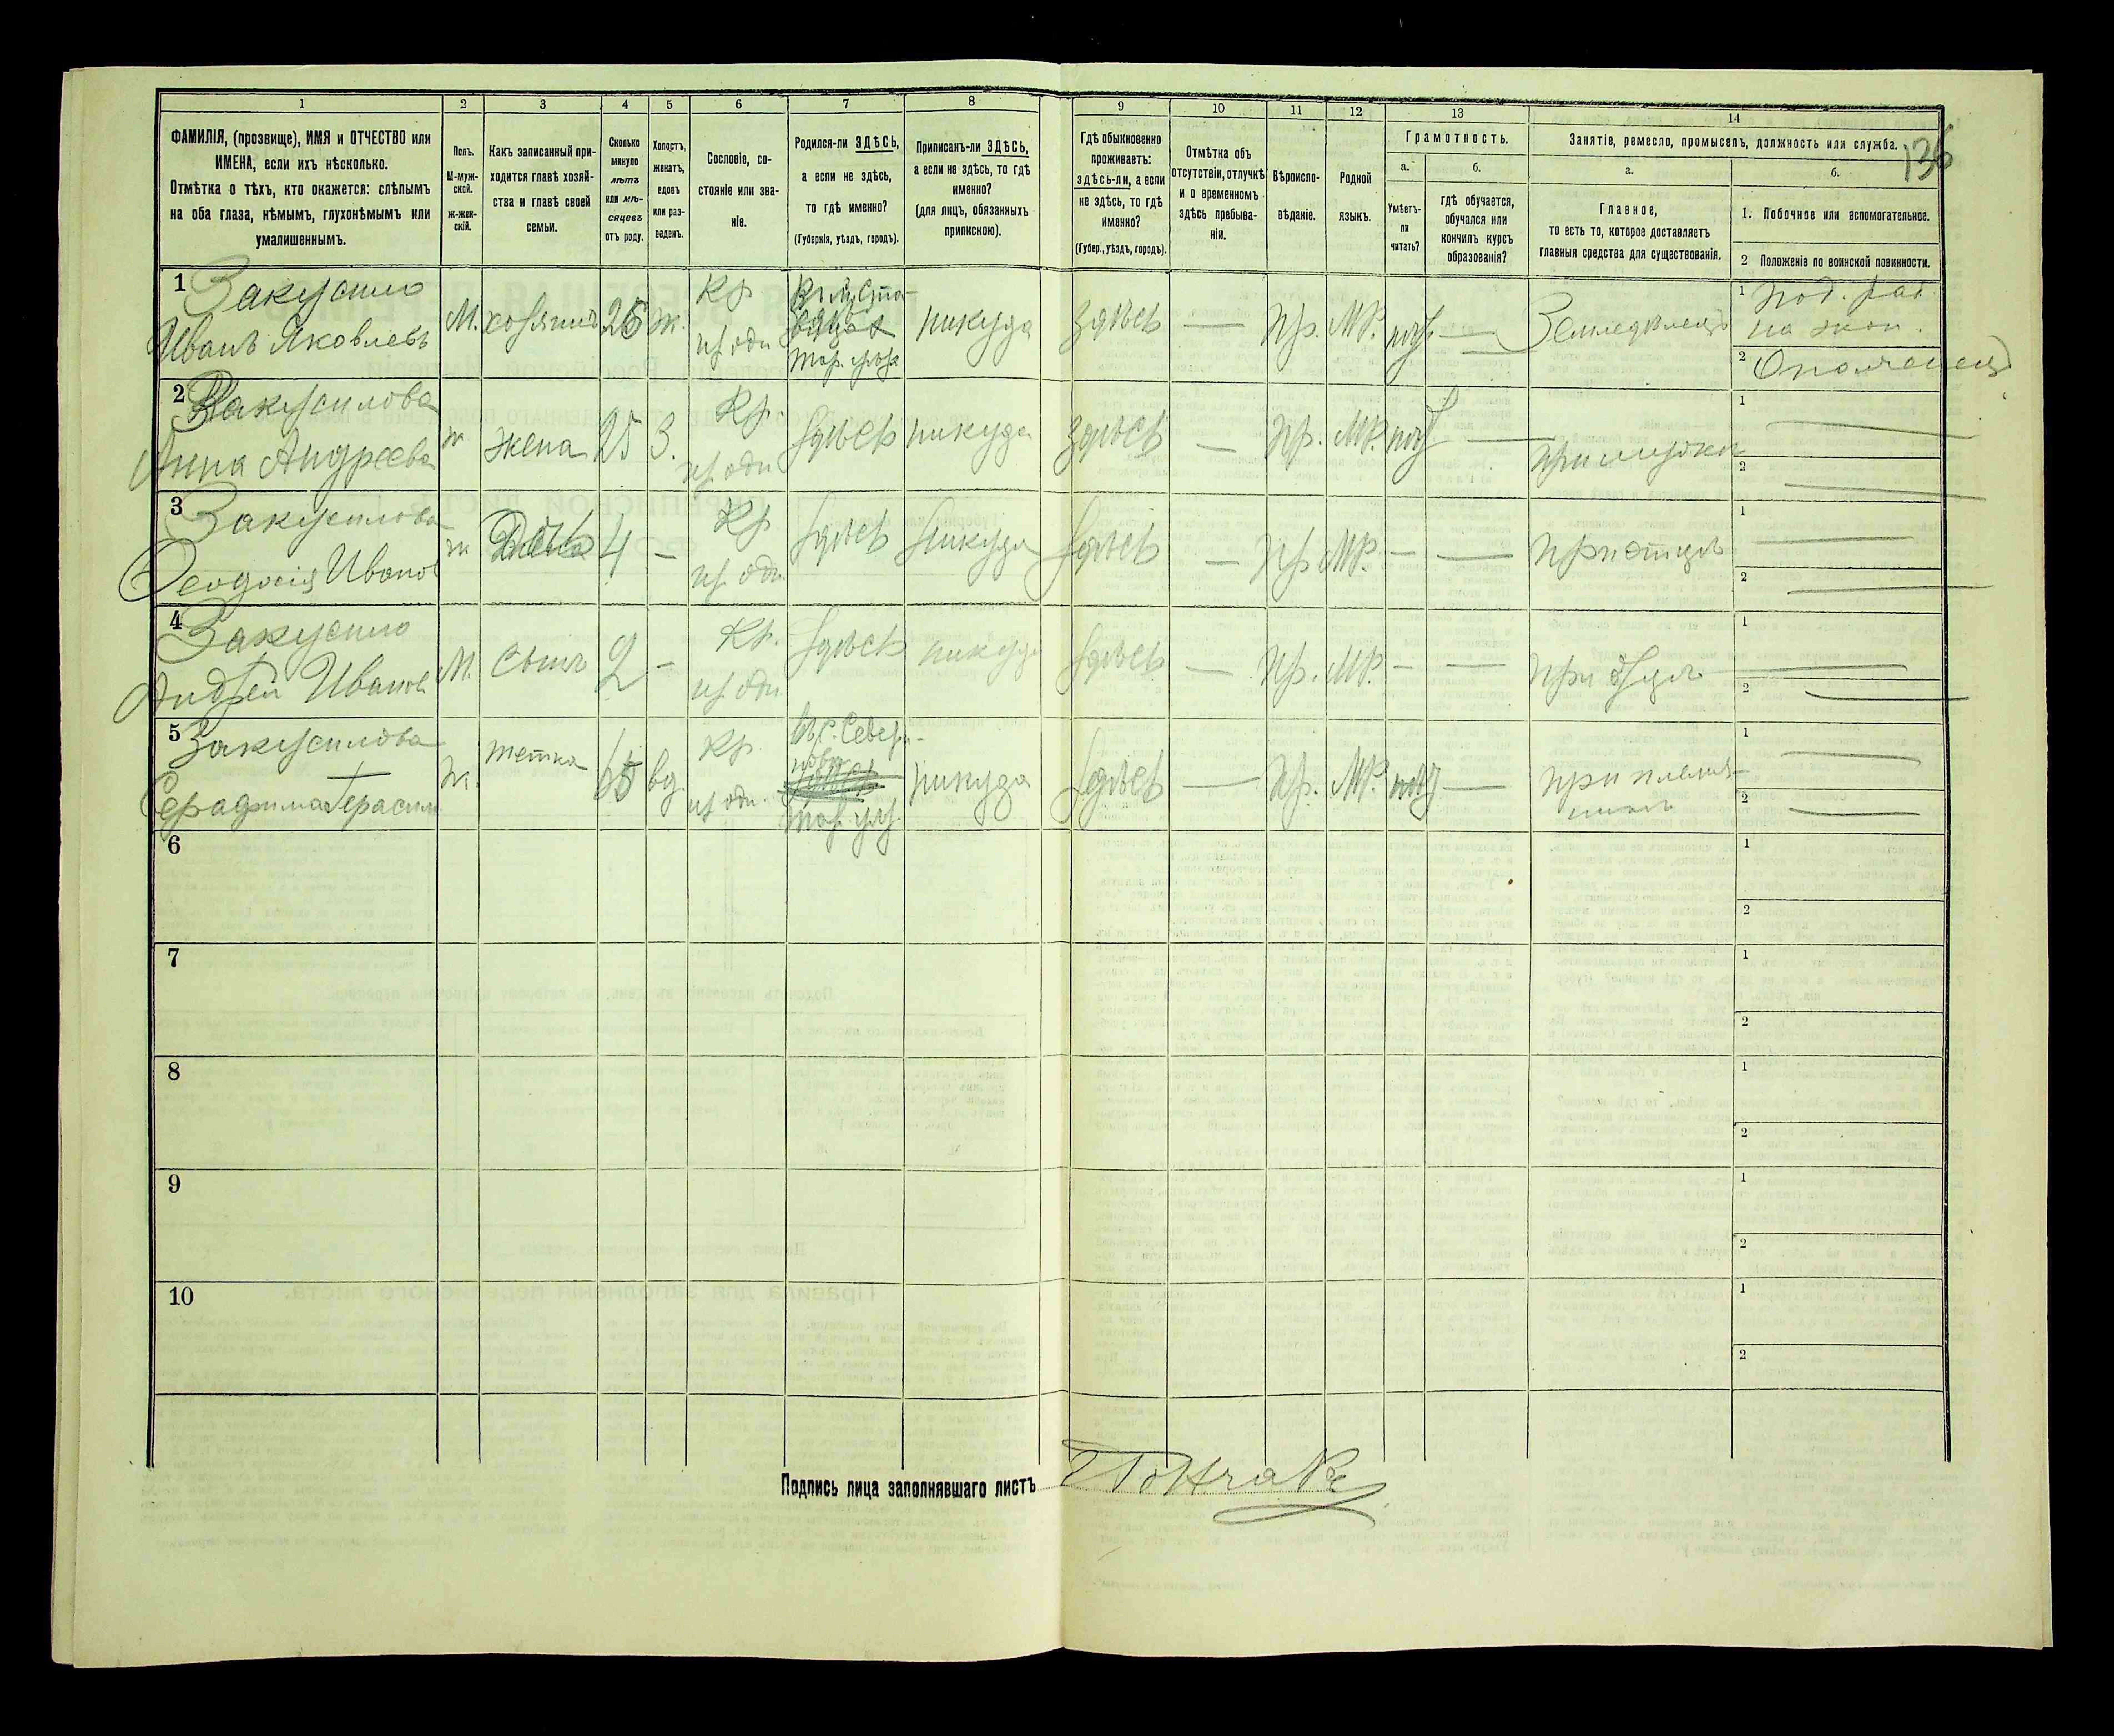 136
1 2 3 4 5 6 7 8 9 10 11 12 13 14
ФАМИЛІЯ, (прозвище), ИМЯ и ОТЧЕСТВО или
ИМЕНА, если ихъ нѣсколько.
Отмѣтка о тѣхъ, кто окажется: слѣпымъ
на оба глаза, нѣмымъ, глухонѣмымъ или
умалишеннымъ.
Полъ.
М-муж-
ской.
ж-жен-
скій.
Какъ записанный при-
ходится главѣ хозяй-
ства и главѣ своей
семьи.
Сколько
минуло
лѣтъ
или мѣ-
сяцевъ
отъ роду.
Холостъ,
женатъ,
вдовъ
или раз-
веденъ.
Сословіе, со-
стояніе или зва-
ніе.
Родился-ли ЗДѢСЬ,
а если не здѣсь,
то гдѣ именно?
(Губернія, уѣздъ, городъ).
Приписанъ-ли ЗДѢСЬ,
а если не здѣсь, то гдѣ
именно?
(для лицъ, обязанныхъ
припискою).
Гдѣ обыкновенно
проживаетъ:
здѣсь-ли, а если
не здѣсь, то гдѣ
именно?
(Губер., уѣздъ, городъ).
Отмѣтка объ
отсутствіи, отлучкѣ
и о временномъ
здѣсь пребыва-
ніи.
Вѣроиспо-
вѣданіе.
Родной
языкъ.
Грамотность.
а.
Умѣетъ-
ли
читать?
б.
гдѣ обучается,
обучался или
кончилъ курсъ
образованія?
Занятіе, ремесло, промыселъ, должность или служба.
а.
Главное,
то есть то, которое доставляетъ
главныя средства для существованія.
б.
1. Побочное или вспомогательное.
2 Положеніе по воинской повинности.
1 Закусило
Иванъ Яковлевъ
М.
хозяинъ
26
ж.
Кр
Тар. уѣзд
никуда
здѣсь
—
Пр.
МР.
—
Земледѣлецъ
1 Под. раб
на экон.
2 Ополченецъ
2 Закусилова
Анна Андреева
ж
жена
25
З.
Кр.
здѣсь
никуда
здѣсь
—
Пр.
МР.
—
при мужѣ
1
2
3 Закусилова
Феодосія Иванов
ж
Дочь
4
—
Кр
здѣсь
Никуда
здѣсь
—
Пр
МР.
—
—
при отцѣ
1
2
4 Закусило
Андрей Иванов
М.
Сынъ
2
—
Кр.
здѣсь
никуда
здѣсь
—
Пр.
МР.
—
—
при отцѣ
1
2
5 Закусилова
Серафима Герасим
ж.
тетка
65
вд
Кр.
никуда
здѣсь
—
Пр.
МР.
—
при племян-
никѣ
1
2
6
1
2
7
1
2
8
1
2
9
1
2
10
1
2
Подпись лица заполнявшаго листъ